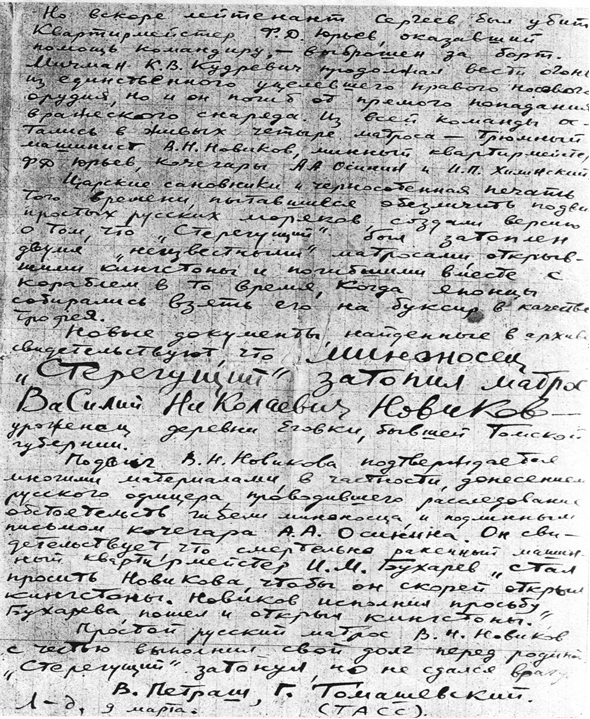 Но вскоре лейтенант Сергеев был убит.
Квартирмейстер Ф.Д. Юрьев, оказавший
помощь командиру, — выброшен за борт.
Мичман К.В. Кудревич продолжал вести огонь
из единственного уцелевшего правого носового
орудия, но и он погиб от прямого попадания
вражеского снаряда. Из всей команды о-
тались в живых четыре матроса — трюмный
машинист В.Н. Новиков, минный квартирмейстер
Ф.Д. Юрьев, кочегары А.А. Осинин и И.П. Хиринский
Царские сановники и черносотенная печать
того времени, пытавшиеся обезличить подви
простых русских моряков, создали версию
о том, что „Стерегущий" был затоплен
двумя „неизвестными" матросами, открыв-
шими кингстоны и погибшими вместе с
кораблем в то время, когда японцы
собирались взять его на буксир в качестве
трофея.
Новые документы, найденные в архиве
свидетельствуют, что миноносец
„Стерегущий" затопил матрос
Василий Николаевич Новиков —
уроженец деревни Еловки, бывшей Томской
губернии.
Подвиг В.Н. Новикова подтверждается
многими материалами, в частности, донесением
русского офицера, проводившего расследование
обстоятельств гибели миноносца, и подлинным
письмом кочегара А.А. Осинина. Он сви-
детельствует, что смертельно раненный машин-
ный квартирмейстер И.М. Бухарев „стал
просить Новикова чтобы он скорей открыл
кингстоны. Новиков исполнил просьбу
Бухарева пошел и открыл кингстоны."
Простой русский матрос В.Н. Новиков
с честью выполнил свой долг перед родиной
„Стерегущий" затонул, но не сдался врагу.
В. Петраш, Г. Томашевский.
Л-д, 9 марта. (ТАСС).